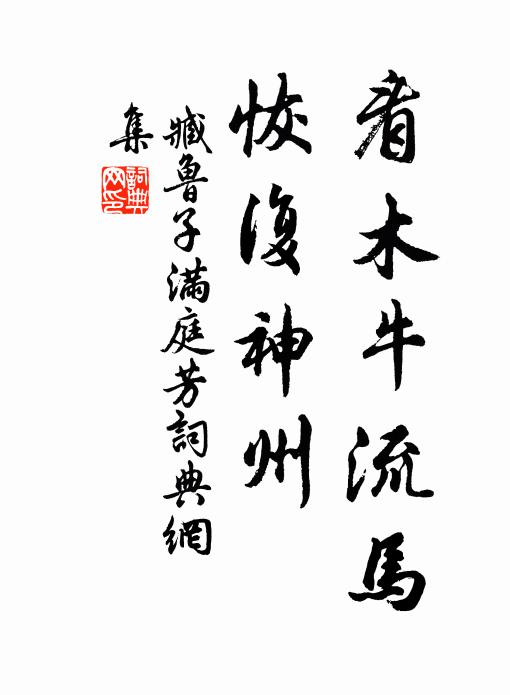 看木牛流馬
恢復神州
臧魯子滿庭芳詞典網
集
詞典
网印